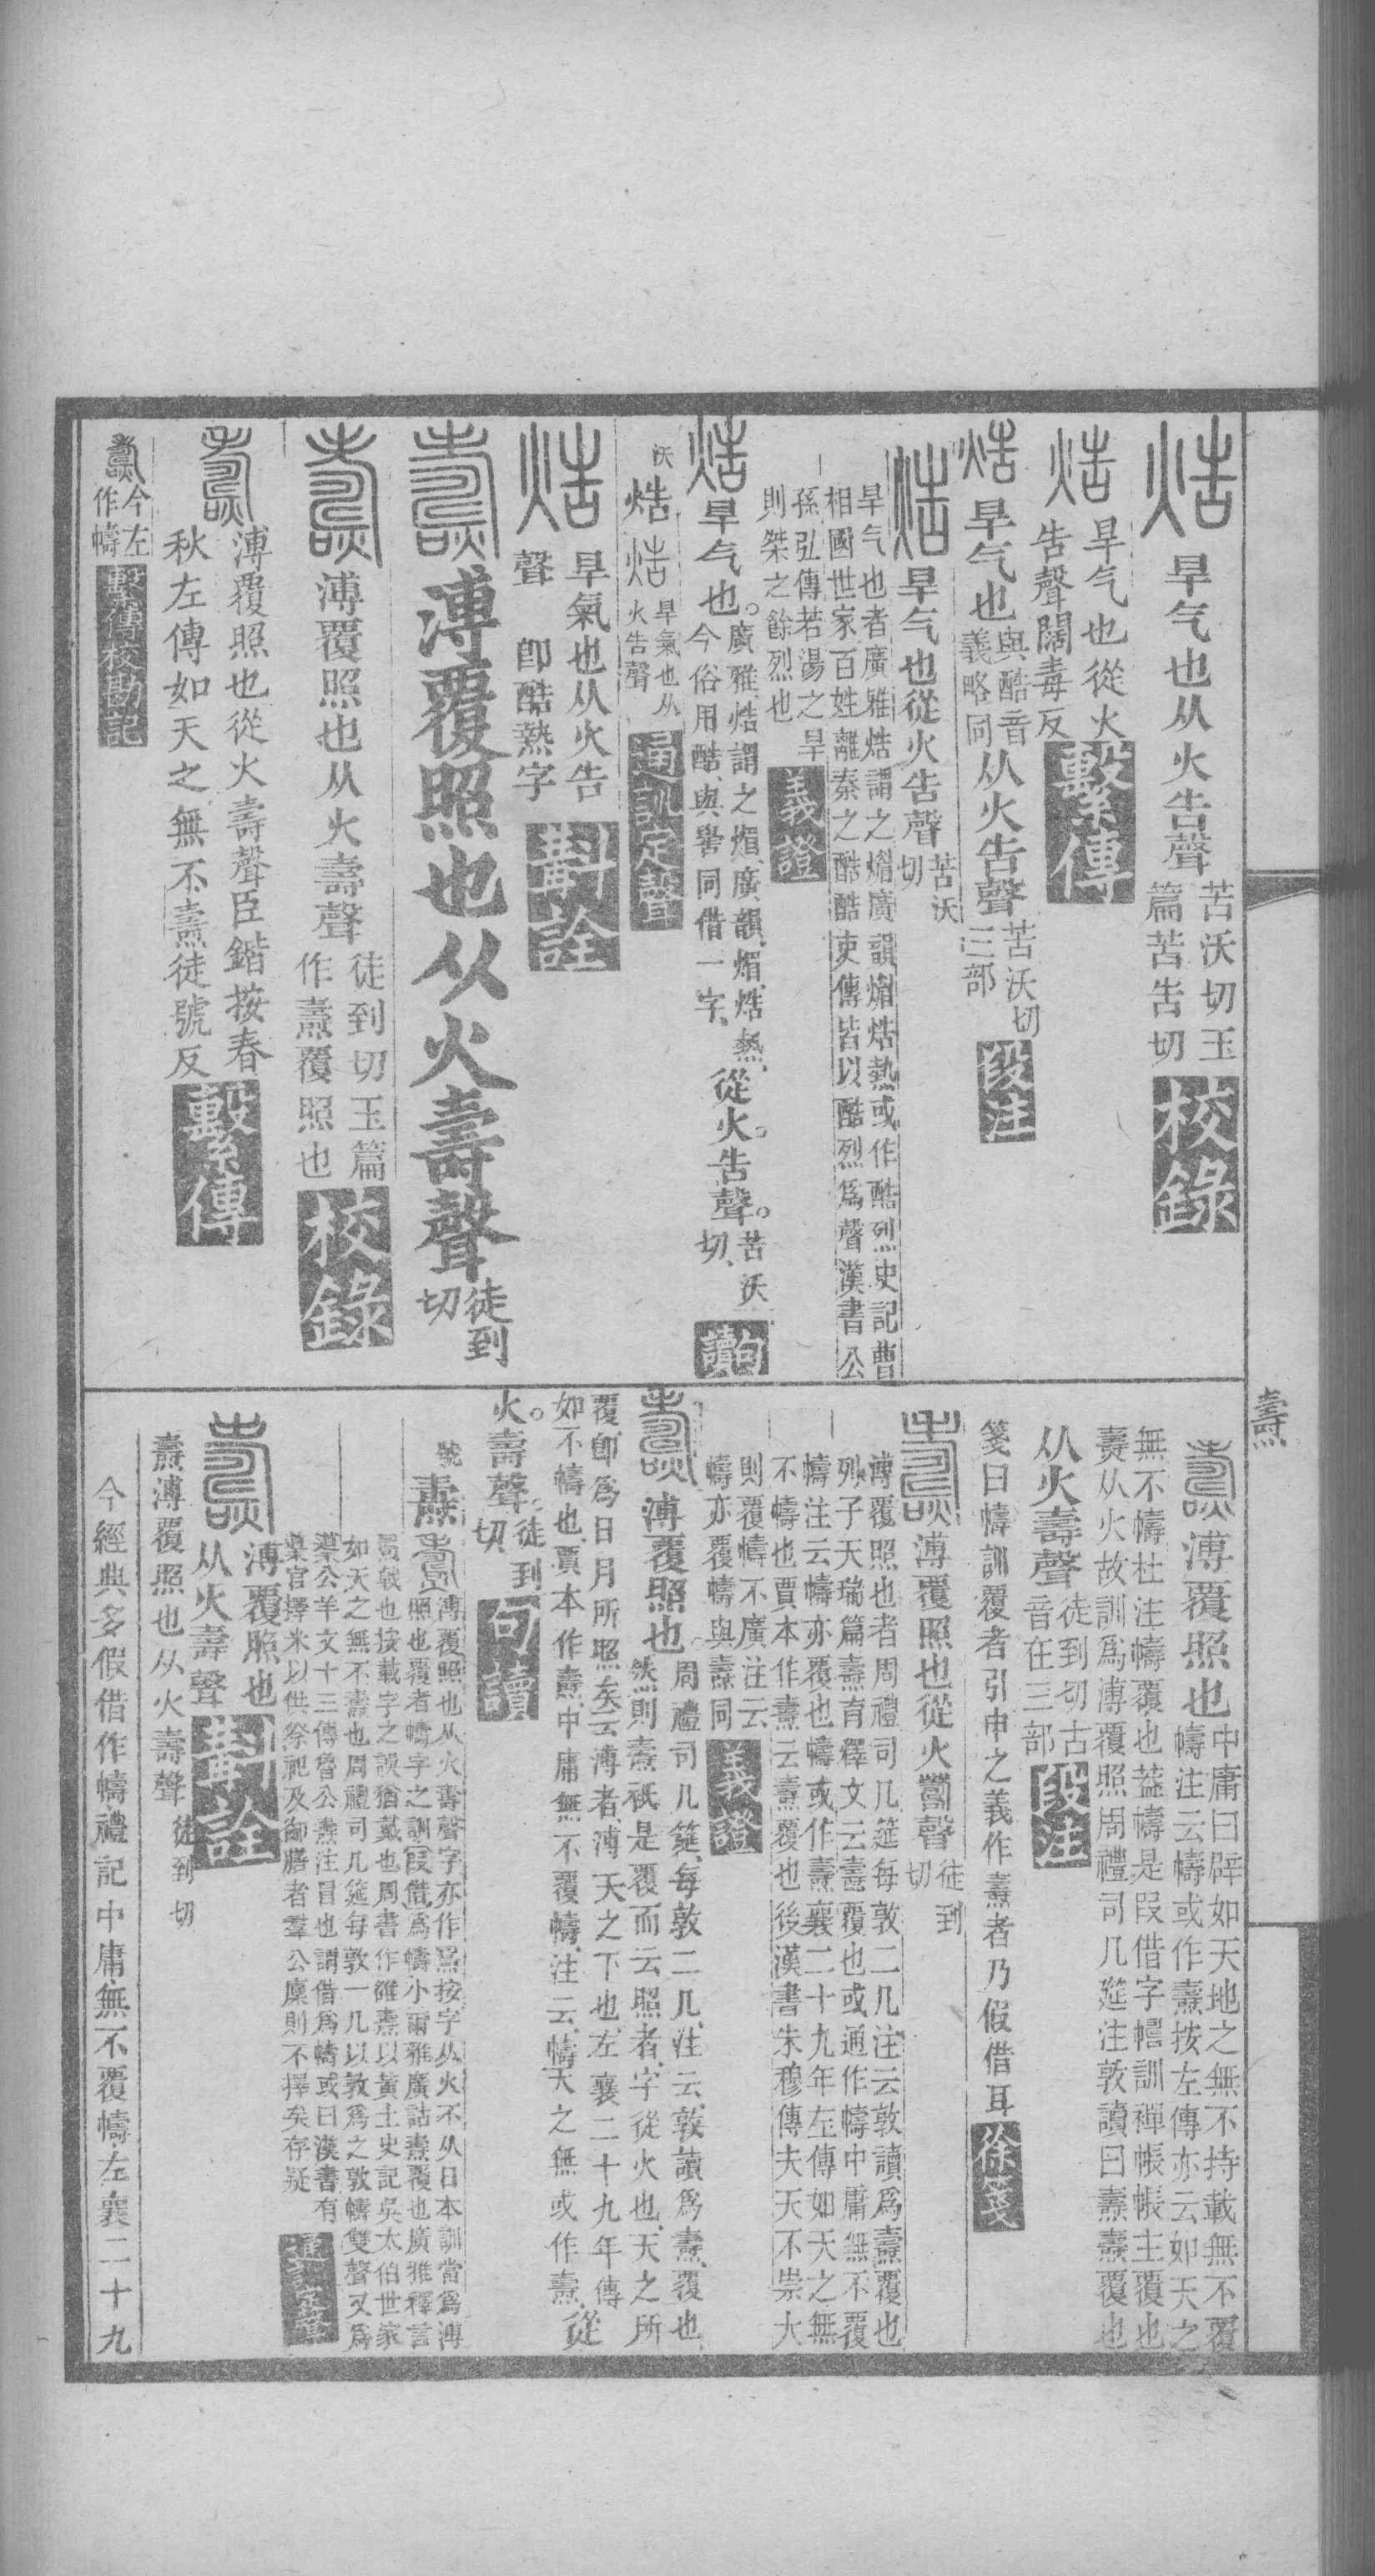 焅 旱气也从火告聲 苦沃切玉
篇苦告切 校錄
焅 旱气也從火
告聲闊毒反 繫傳
焅 旱气也 與酷音
義略同 从火告聲 苦沃切
三部 段注
焅 旱气也從火告聲 苦沃
切
旱气也者廣雅焅謂之煝廣韻煝焅熱或作酷烈史記曹
相國世家百姓離秦之酷酷吏傳皆以酷烈爲聲漢書公
孫弘傳若湯之旱
則桀之餘烈也 義證
焅 旱气也。廣雅、焅謂之煝、廣韻、煝、焅、熱、
今俗用酷、與嚳同借一字、從火。告聲。苦沃
切、 句讀
沃 焅 焅 旱氣也从
火告聲 通訓定聲
焅 旱氣也从火告
聲 卽酷熱字 斠詮
燾 溥覆照也从火壽聲 徒到
切
燾 溥覆照也从火壽聲 徒到切玉篇
作燾覆照也 校錄
燾 溥覆照也從火壽聲臣鍇按春
秋左傳如天之無不燾徒號反 繫傳
燾 今左
作幬 繫傳校勘記
燾
燾 溥覆照也 中庸曰辟如天地之無不持載無不覆
幬注云幬或作燾按左傳亦云如天之
無不幬杜注幬覆也葢幬是叚借字幬訓襌帳帳主覆也
燾从火故訓爲溥覆照周禮司几筵注敦讀曰燾燾覆也
从火壽聲 徒到切古
音在三部 段注
箋曰幬訓覆者引申之義作燾者乃假借耳 徐箋
燾 溥覆照也從火壽聲 徒到
切
溥覆照也者周禮司几筵每敦二几注云敦讀爲燾覆也
列子天瑞篇燾育釋文云燾覆也或通作幬中庸無不覆
幬注云幬亦覆也幬或作燾襄二十九年左傳如天之無
不幬也賈本作燾云燾覆也後漢書朱穆傳夫天不崇大
則覆幬不廣注云
幬亦覆幬與燾同 義證
燾 溥覆照也。周禮司几筵、每敦二几、注云、敦讀爲燾、覆也、
然則燾祇是覆而云照者、字從火也、天之所
覆、卽爲日月所照矣、云溥者、溥天之下也、左襄二十九年傳
如不幬也、賈本作燾、中庸無不覆幬、注云、幬天之無或作燾、從
火。壽聲。徒到
切、 句讀
號 燾 燾 溥覆照也从火壽聲字亦作 按字从火不从日本訓當爲溥
照也覆者幬字之訓叚借爲幬小爾雅廣詁燾覆也廣雅釋言
燾 也按載字之誤猶戴也周書作雒燾以黃土史記吳太伯世家
如天之無不燾也周禮司几筵每敦一几以敦爲之敦幬雙聲又爲
公羊文十三傳魯公燾注冒也謂借爲幬或曰漢書有
導官擇米以供祭祀及御膳者羣公廩則不擇矣存疑 通訓定聲
燾 溥覆照也
从火壽聲 斠詮
燾溥覆照也从火壽聲 徒到切
今經典多假借作幬禮記中庸無不覆幬左襄二十九